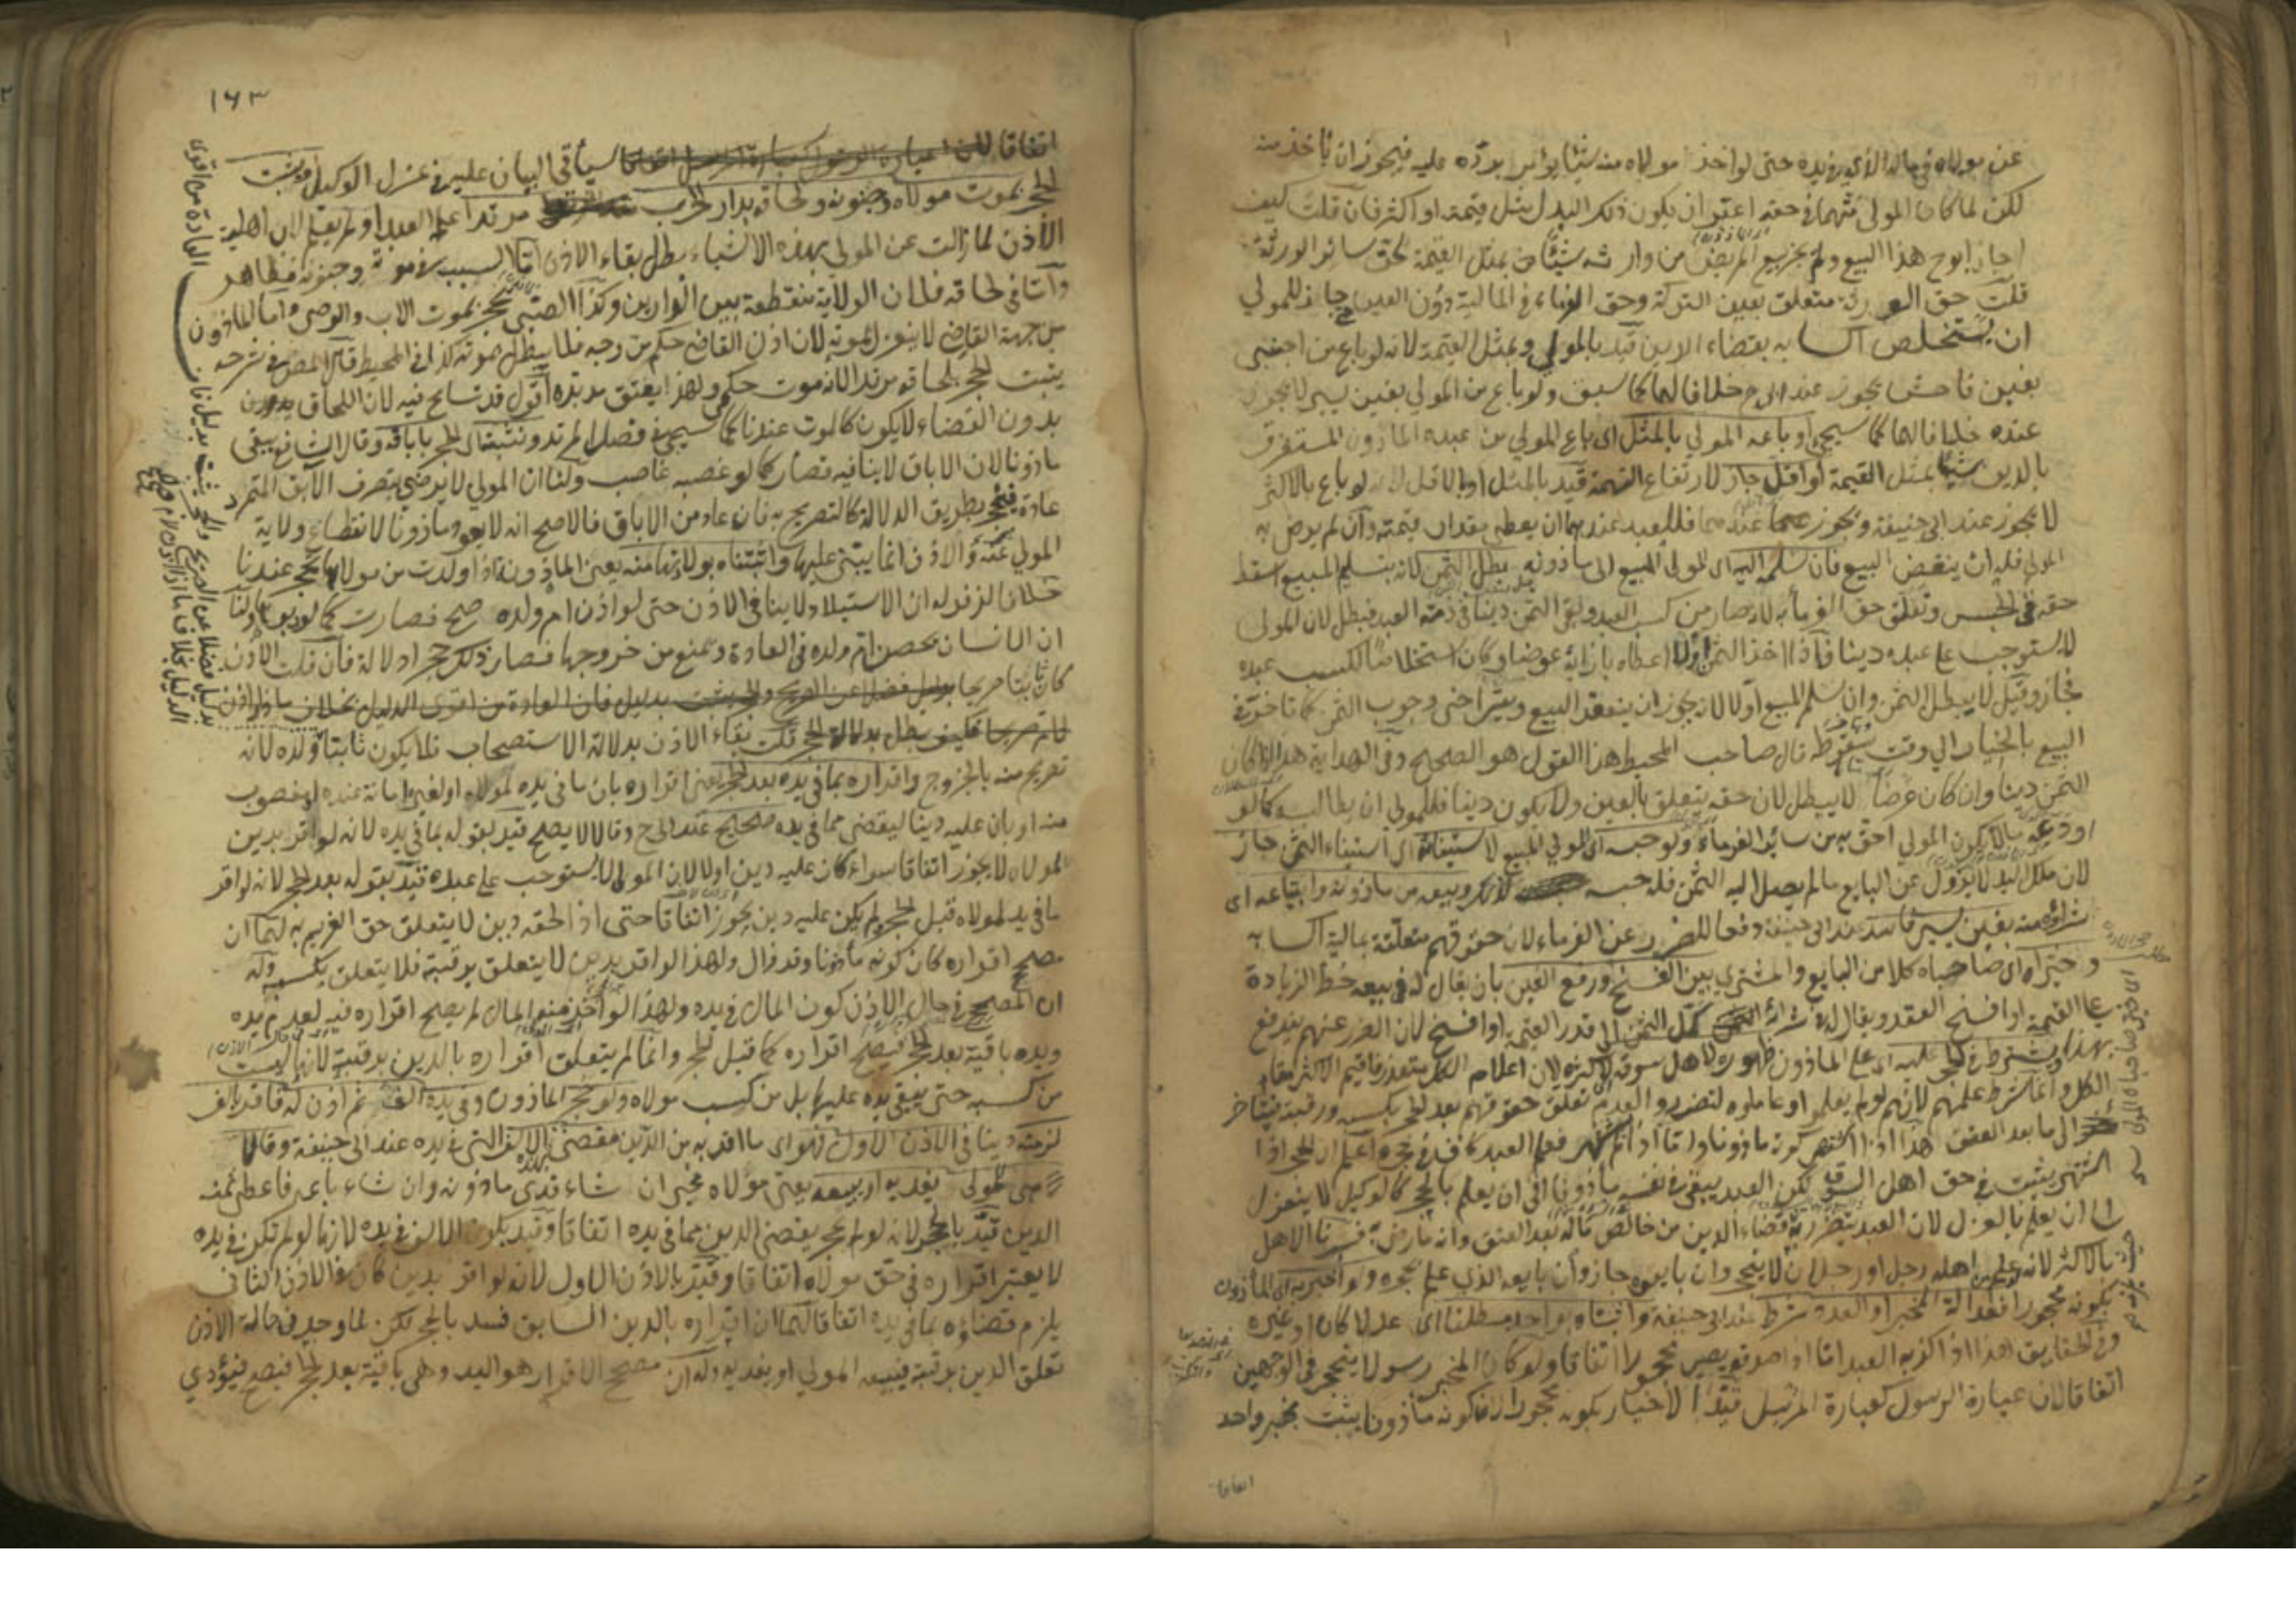 عن مولاه في ماله الذي في يده حتى لو اخذ مولاه منه شيئا يؤمر برده عليه فيجوز ان يأخذ منه
لكن لما كان المولى متهما في حقه اعتبر ان يكون ذلك البدل مثل قيمته او اكثر فان قلت كيف
اجاز ابوح هذا البيع ولم يجز بيع المريض من وارثه شيئا من بمثل القيمة لحق سائر الورثة
قلت حق الورثة متعلق بعين التركة وحق الغرماء في المالية دون العين جاز للمولى
ان يستخلص اكسابه بقضاء الدين قيد بالمولى وبمثل القيمة لانه لو باع من اجنبي
بغبن فاحش يجوز عند ابي ح خلافا لهما كما سبق ولو باع من المولى بغبن يسير لا يجوز
عنده خلافا لهما كما سيجئ او باعه المولى بالمثل اى باع المولى من عبده المأذون المستغرق
بالدين شيئا بمثل القيمة او اقل جاز لارتفاع التهمة قيد بالمثل او بالاقل لانه لو باع بالاكثر
لا يجوز عند ابي حنيفة ويجوز عندهما فللعبد عندهما ان يعطى مقدار قيمته وان لم يرض به
المولى فله ان ينقض البيع فان سلمه اليه اى المولى المبيع الى مأذونه بطل الثمن لانه بتسليم المبيع اسقط
حقه في الحبس وتعلق حق الغرماء به لانه صار من كسب العبد وبقى الثمن دينا في ذمة العبد فبطل لان المولى
لا يستوجب على عبده دينا فاذا اخذ الثمن اولا اعطاه بازائه عوضا وكان استخلاصا لكسب عبده
فجاز وقيل لا يبطل الثمن وان سلم المبيع اولا لانه يجوز ان ينعقد البيع ويتراخى وجوب الثمن كما تأخر في
البيع بالخيار الى وقت سقوطه قال صاحب المحيط هذا القول هو الصحيح وفي الهداية هذا اذا كان
الثمن دينا وان كان عرضا لا يبطل لان حقه يتعلق بالعين ولا يكون دينا فللمولى ان يطالبه كما لو
اودعه مالا يكون المولى احق به من سائر الغرماء ولو حبسه اى المولى المبيع لاستيفائه اى استيفاء الثمن جاز
لان ملك اليد لا يزول عن البايع ما لم يصل اليه الثمن فله حبسه لذلك وبيعه من مأذونه وابتياعه اى
شراؤه منه بغبن يسير فاسد عند ابي حنيفة دفعا للضرر عن الغرماء لان حقوقهم متعلقة بمالية اكسابه
وخيراه اى صاحباه كلا من البايع والمشتري بين الفسخ ورفع الغبن بان يقال له في بيعه حط الزيادة
على القيمة او افسخ العقد ويقال له في شرائه كمل الثمن الى قدر القيمة او افسخ لان الضرر عنهم يندفع
بهذا ويشترط في الحجر عليه اى على المأذون ظهوره لاهل سوقه لاكثره لان اعلام الكل متعذر فاقيم الاكثر مقام
الكل وانما شرط علمهم لانهم لو لم يعلموا وعاملوه لتضرروا لعدم تعلق حقوقهم بعد الحجر بكسبه ورقبته فيتأخر
الى ما بعد العتق هذا اذا اشتهر كونه مأذونا واما اذا لم يشتهر فعلم العبد كاف في حجره اعلم ان الحجر اذا
اشتهر يثبت في حق اهل السوق لكن العبد يبقى في نفسه مأذونا الى ان يعلم بالحجر كالوكيل لا ينعزل
الى ان يعلم بالعزل لان العبد يتضرر به قضاء الدين من خالص ماله بعد العتق وانه ما رضى به فسرنا الاهل
بالاكثر لانه لو علم من اهله رجل او رجلان لا ينحجر وان بايعوه جاز وان بايعه الذي علم بحجره ولو اخبر به اى المأذون
بكونه محجورا فعدالة المخبر او العدد شرط عند ابي حنيفة واثبتاه بواحد مطلقا اى عدلا كان او غيره
وفي الحقايق هذا اذا كذبه العبد اما اذا صدقه يصير محجورا اتفاقا ولو كان المخبر رسولا ينحجر في الوجهين
اتفاقا لان عبارة الرسول كعبارة المرسل قيد الاخبار بكونه محجورا لان كونه مأذونا يثبت بخبر واحد
اتفاقا
١٦٣
اتفاقا سيأتى البيان عليه في عزل الوكيل ويثبت
الحجر بموت مولاه وجنونه ولحاقه بدار الحرب مرتدا علم العبد او لم يعلم لان اهلية
الاذن لما زالت عن المولى بهذه الاشياء بطل بقاء الاذن اما السبب في موته وجنونه فظاهر
واما في لحاقه فلان الولاية منقطعة بين الدارين وكذا الصبى يحجر بموت الاب والوصى واما المأذون
من جهة القاضى لا ينعزل بموته لان اذن القاضى حكم من وجه فلا يبطل بموته كذا في المحيط قال المص في شرحه
يثبت الحجر بلحاقه مرتدا لانه موت حكمى ولهذا يعتق مدبره اقول قد تسامح فيه لان اللحاق بدون
بدون القضاء لا يكون كالموت عندنا كما سيجئ في فصل المرتد ونثبته اى الحجر باباقه وقال الشافعى يبقى
مأذونا لان الاباق لا ينافيه فصار كما لو غصبه غاصب ولنا ان المولى لا يرضى بتصرف الآبق المتمرد
عادة فينحجر بطريق الدلالة كالتصريح به فان عاد من الاباق فالاصح انه لا يعود مأذونا لانقطاع ولاية
المولى عنه والاذن انما يبتنى عليها واثبتناه بولادتها منه يعنى المأذونة اذا ولدت من مولاها تحجر عندنا
خلافا لزفر له ان الاستيلاد لا ينافى الاذن حتى لو اذن ام ولده صح فصارت كما لو دبرها ولنا
ان الانسان يحصن ام ولده في العادة ويمنع من خروجها فصار ذلك حجرا دلالة فان قلت الاذن
كان ثابتا صريحا فكيف بطل بدلالة الحجر قلت بقاء الاذن بدلالة الاستصحاب فلا يكون ثابتا
تصريح منه بالخروج واقراره بما في يده بعد الحجر يعنى اقراره بان ما في يده لمولاه او لغيره امانة عنده او غصوب
منه او بان عليه دينا ليقضى مما في يده صحيح عند ابي ح وقالا لا يصح قيد بقوله بما في يده لانه لو اقر بدين
لمولاه لا يجوز اتفاقا سواء كان عليه دين او لا لان المولى لا يستوجب على عبده قيد بقوله بعد الحجر لانه لو اقر
ما في يده لمولاه قبل الحجر ولم يكن عليه دين يجوز اتفاقا حتى اذا لحقه دين لا يتعلق حق الغريم به لهما ان
مصحح اقراره كان كونه مأذونا وقد زال ولهذا لو اقر بدين لا يتعلق برقبته فلا يتعلق بكسبه وله
ان المصحح في حال الاذن كون المال في يده ولهذا لو اخذ منه المال لم يصح اقراره فيه لعدم يده
ويده باقية بعد الحجر فيصح اقراره كما قبل الحجر وانما لم يتعلق اقراره بالدين برقبته لانها ليست
من كسبه حتى يبقى يده عليها بل من كسب مولاه ولو حجر المأذون وفي يده الف ثم اذن له فاقر بالف
لزمته دينا في الاذن الاول فهو اى ما اقر به من الدين مقضى من الالف التى في يده عند ابي حنيفة وقالا
هى للمولى يفديه او يبيعه يعنى مولاه مخير ان شاء فدى مأذونه وان شاء باعه فاعطى ثمنه
الدين قيد بالحجر لانه لو لم يحجر يقضى الدين مما في يده اتفاقا وقيد بكون الالف في يده لانها لو لم تكن في يده
لا يعتبر اقراره في حق مولاه اتفاقا وقيد بالاذن الاول لانه لو اقر بدين كان في الاذن الثانى
يلزم قضاؤه بما في يده اتفاقا لهما ان اقراره بالدين السابق فسد بالحجر لكن لما وجد في حالة الاذن
تعلق الدين برقبته فيبيعه المولى او يفديه وله ان مصحح الاقرار هو اليد وهى باقية بعد الحجر فيصح فيؤدى